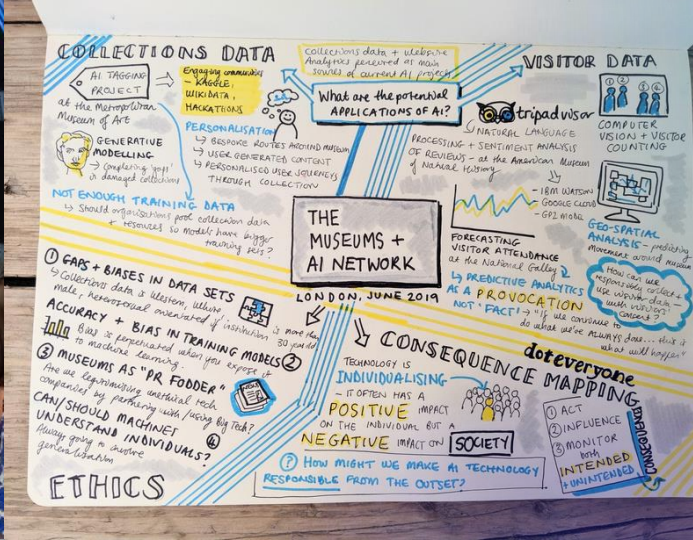 COLLECTIONS DATA
AI TAGGING
PROJECT
at the Metropolitan
Museum of Art
Engaging communities
- KAGGLE,
WIKIDATA,
HACKATHONS
GENERATIVE
MODELLING
↳ completing 'gaps'
in damaged collections
PERSONALISATION
↳ BESPOKE ROUTES AROUND MUSEUM
↳ USER GENERATED CONTENT
↳ PERSONALISED USER JOURNEYS
THROUGH COLLECTION
NOT ENOUGH TRAINING DATA
↳ Should organisations pool collection data
+ resources so models have bigger
training sets?
collections data + website
Analytics perceived as main
source of current AI projects
What are the potential
APPLICATIONS OF AI?
VISITOR DATA
tripadvisor
NATURAL LANGUAGE
PROCESSING + SENTIMENT ANALYSIS
OF REVIEWS - at the American Museum
of Natural History
- IBM WATSON
GOOGLE CLOUD
- GP2 MODEL
COMPUTER
VISION + VISITOR
COUNTING
GEO-SPATIAL
ANALYSIS - predicting
movement around museum
FORECASTING
VISITOR ATTENDANCE
at the National Gallery
↳ PREDICTIVE ANALYTICS
AS A PROVOCATION
NOT 'FACT' → "IF we continue to
do what we're ALWAYS done... this is
what will happen"
How can we
responsibly collect +
use visitor data -
with visitors'
consent?
THE
MUSEUMS +
AI NETWORK
LONDON, JUNE 2019
① GAPS + BIASES IN DATA SETS
↳ Collections data is western, white,
male, heterosexual orientated if institution
is more than
30 years old
ACCURACY + BIAS IN TRAINING MODELS ②
Bias is perpetuated when you expose it
to machine learning.
③ MUSEUMS AS "PR FODDER"
Are we legitimising unethical tech
companies by partnering with/using Big Tech?
CAN/SHOULD MACHINES ④
UNDERSTAND INDIVIDUALS?
Always going to involve
generalisation
ETHICS
doteveryone
CONSEQUENCE MAPPING
TECHNOLOGY IS
INDIVIDUALISING
- IT OFTEN HAS A
POSITIVE IMPACT
ON THE INDIVIDUAL BUT A
NEGATIVE IMPACT ON SOCIETY
? HOW MIGHT WE MAKE AI TECHNOLOGY
RESPONSIBLE FROM THE OUTSET?
① ACT
② INFLUENCE
③ MONITOR
both
INTENDED
+ UNINTENDED
CONSEQUENCES